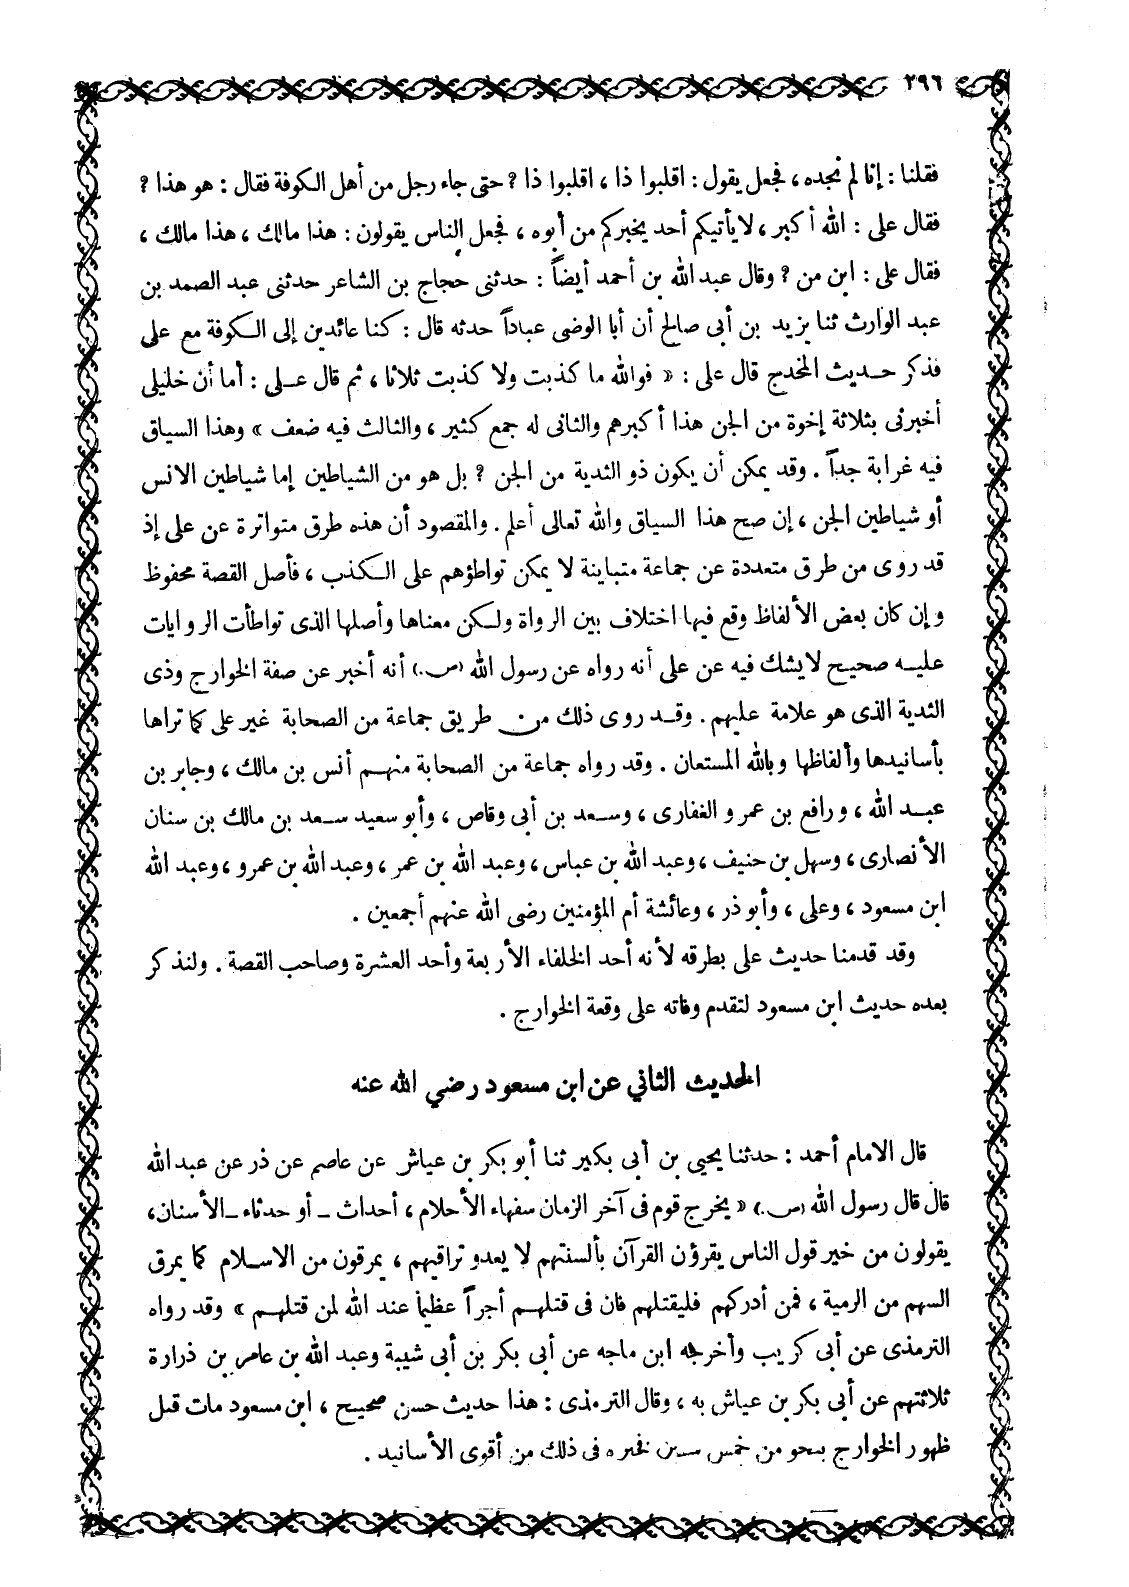 ٢٩٦
فقلنا : إنا لم نجده ، فجعل يقول : اقلبوا ذا ، اقلبوا ذا ؟ حتى جاء رجل من أهل الكوفة فقال : هو هذا ؟
فقال على : الله أكبر ، لا يأتيكم أحد يخبركم من أبوه ، فجعل الناس يقولون : هذا مالك ، هذا مالك ،
فقال على : ابن من ؟ وقال عبد الله بن أحمد أيضاً : حدثنى حجاج بن الشاعر حدثنى عبد الصمد بن
عبد الوارث ثنا يزيد بن أبى صالح أن أبا الوضى عباداً حدثه قال : كنا عائدين إلى الكوفة مع على
فذكر حديث المخدج قال على : « فوالله ما كذبت ولا كذبت ثلاثا ، ثم قال على : أما أن خليلى
أخبرنى بثلاثة إخوة من الجن هذا أكبرهم والثانى له جمع كثير ، والثالث فيه ضعف » وهذا السياق
فيه غرابة جداً . وقد يمكن أن يكون ذو الثدية من الجن ؟ بل هو من الشياطين إما شياطين الانس
أو شياطين الجن ، إن صح هذا السياق والله تعالى أعلم . والمقصود أن هذه طرق متواترة عن على إذ
قد روى من طرق متعددة عن جماعة متباينة لا يمكن تواطؤهم على الكذب ، فأصل القصة محفوظ
وإن كان بعض الألفاظ وقع فيها اختلاف بين الرواة ولكن معناها وأصلها الذى تواطأت الروايات
عليه صحيح لا يشك فيه عن على أنه رواه عن رسول الله (ص.) أنه أخبر عن صفة الخوارج وذى
الثدية الذى هو علامة عليهم . وقد روى ذلك من طريق جماعة من الصحابة غير على كما تراها
بأسانيدها وألفاظها وبالله المستعان . وقد رواه جماعة من الصحابة منهم أنس بن مالك ، وجابر بن
عبد الله ، ورافع بن عمرو الغفارى ، وسعد بن أبى وقاص ، وأبو سعيد سعد بن مالك بن سنان
الأنصارى ، وسهل بن حنيف ، وعبد الله بن عباس ، وعبد الله بن عمر ، وعبد الله بن عمرو ، وعبد الله
ابن مسعود ، وعلى ، وأبو ذر ، وعائشة أم المؤمنين رضى الله عنهم أجمعين .
وقد قدمنا حديث على بطرقه لأنه أحد الخلفاء الأربعة وأحد العشرة وصاحب القصة . ولنذكر
بعده حديث ابن مسعود لتقدم وفاته على وقعة الخوارج .
الحديث الثاني عن ابن مسعود رضي الله عنه
قال الامام أحمد : حدثنا يحيى بن أبى بكير ثنا أبو بكر بن عياش عن عاصم عن ذر عن عبد الله
قال قال رسول الله (ص.) « يخرج قوم فى آخر الزمان سفهاء الأحلام ، أحداث ـ أو حدثاء ـ الأسنان ،
يقولون من خير قول الناس يقرؤن القرآن بألسنتهم لا يعدو تراقيهم ، يمرقون من الاسلام كما يمرق
السهم من الرمية ، فمن أدركهم فليقتلهم فان فى قتلهم أجراً عظيما عند الله لمن قتلهم » وقد رواه
الترمذى عن أبى كريب وأخرجه ابن ماجه عن أبى بكر بن أبى شيبة وعبد الله بن عامر بن ذرارة
ثلاثتهم عن أبى بكر بن عياش به ، وقال الترمذى : هذا حديث حسن صحيح ، ابن مسعود مات قبل
ظهور الخوارج بنحو من خمس سنين فخبره فى ذلك من أقوى الأسانيد .